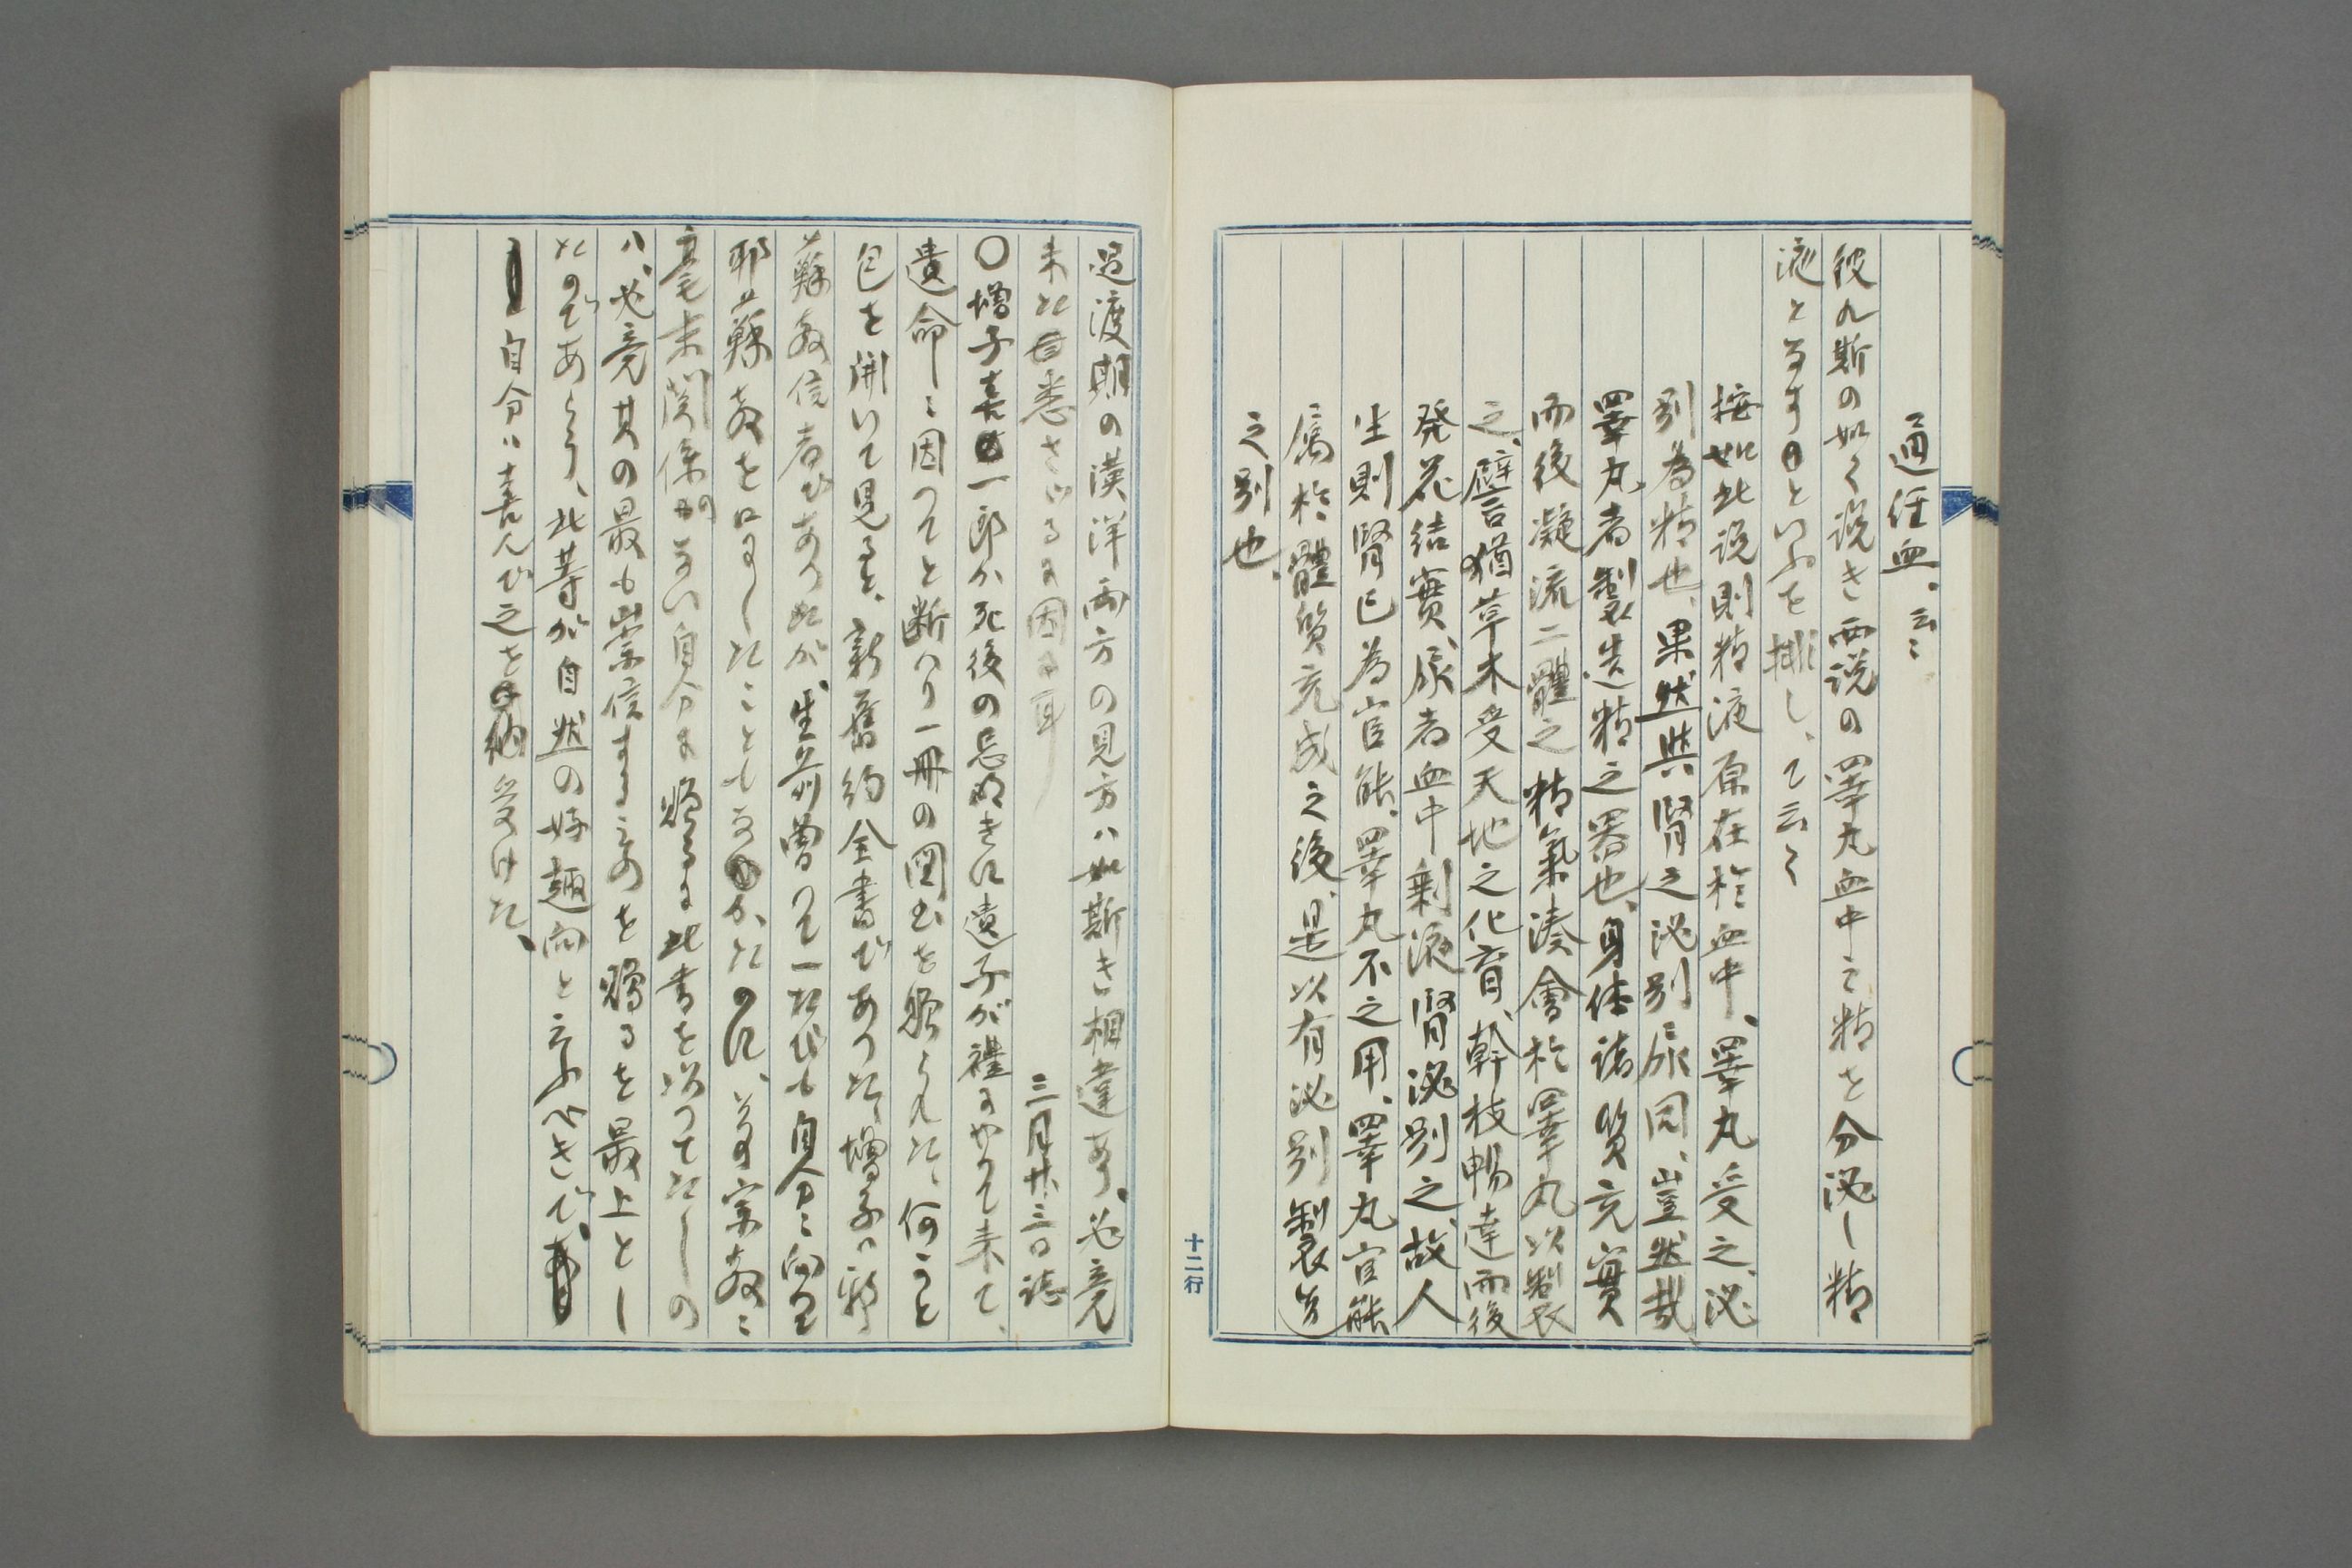 通任血、云〻
彼れ斯の如く説き西説の睾丸血中之精を分泌し精
液となすといふを排し、て云く
按如此説則精液原在於血中、睾丸受之、泌
別為精也、果然與腎之泌別尿同、豈然哉
睾丸者製造精之器也、身体諸質充實
而後凝流二體之精氣湊會於睾丸以製
之、譬猶草木受天地之化育、幹枝暢達而後
発花結實、尿者血中剰液腎泌別之、故人
生則腎已為官能、睾丸不之用、睾丸官能
属於體質充成之後、是以有泌別製造
之別也、
十二行
過渡期の漢洋両方の見方ハ如斯き相違あり、必竟
未た悉さゞるに因る耳
三月廿三日誌
〇増子喜一郎か死後の忌明きに遺子が禮にやつて来て、
遺命に因つてと断ハり一冊の図書を贈られた、何かと
包を開いて見ると、新舊約全書であつた、増子ハ耶
蘇教信者であつたが、生前曽つて一たびも自分に向つて
耶蘇教を口にしたこともなかたのに、宗教に
毫末関係がない自分に贈るに此書を以つてたしの
ハ、必竟其の最も崇信するものを贈るを最上とし
たのであらう、此等が自然の好趣向と云ふべきで、
自分ハ喜んで之を納受けた、